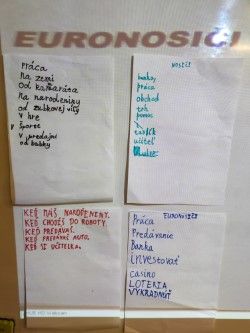 EURONOSIČI
Práca
Na zemi
Od kamaráta
Na narodeniny
od zubkovej víly
v hre
v športe
v predajni
od babky
NOSIČI
banky
práca
obchod
trh
pomoc
učiteľ
KEĎ MÁŠ NARODENINY.
KEĎ CHODÍŠ DO ROBOTY.
KEĎ PREDÁVAŠ.
KEĎ PREDÁVAŠ AUTO.
KEĎ SI UČITEĽKA.
EURONOSIČI
Práca
Predávanie
Banka
investovať
casino
LOTERIA
VYKRADNÚŤ